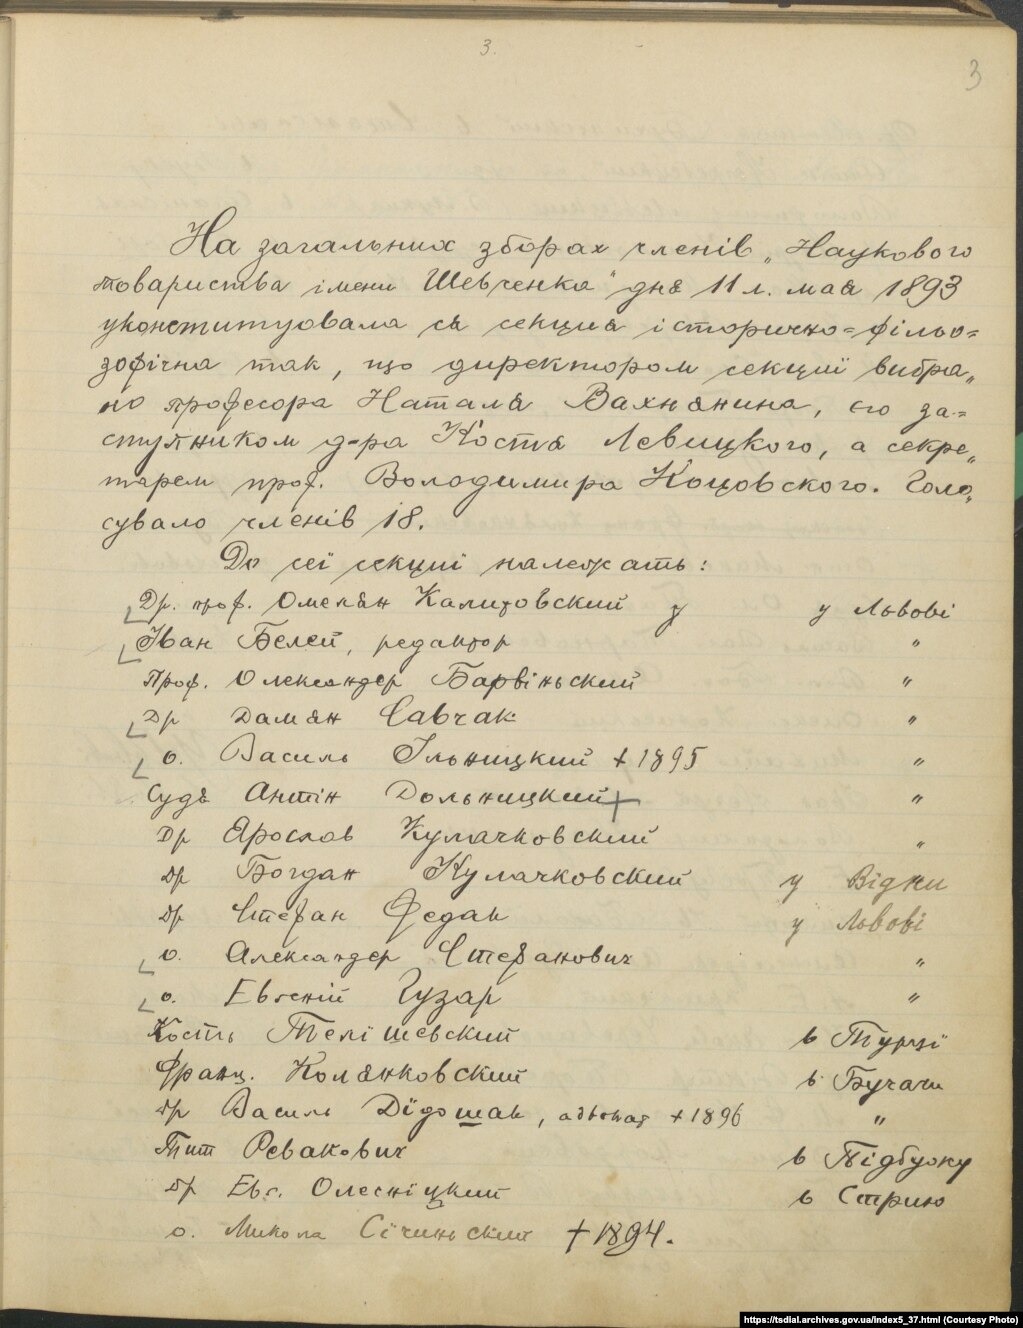 3.
3
На загальних зборах членів „Наукового
товариства імени Шевченка" дня 11 л. мая 1893
уконституовала ся секция історично=фільо=
зофічна так, що директором секциї вибра„
но професора Наталя Вахнянина, єго за=
ступником д-ра Костя Левицкого, а секре„
тарем проф. Володимира Коцовского. Голо„
сувало членів 18.
До сеї секциї належать:
Др. проф. Омелян Калитовский у у Львові
Іван Белей, редактор "
Проф. Олександер Барвіньский "
Др Дамян Савчак "
о. Василь Ільницкий + 1895 "
Судя Антін Дольницкий + "
Др Ярослав Кулачковский "
Др Богдан Кулачковский у Відни
Др Стефан Федак у Львові
о. Александер Стефанович "
о. Евгеній Гузар "
Кость Телішевский в Турці
Франц. Колянковский в Бучачи
Др Василь Дїдошак, адвокат + 1896 "
Тит Ревакович в Підбужу
Др Евг. Олесніцкий в Стрию
о. Микола Сїчиньский + 1894.
https://tsdial.archives.gov.ua/index5_37.html (Courtesy Photo)